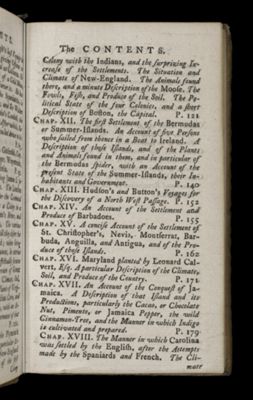 The CONTENTS.
Colony with the Indians, and the surprizing In-
crease of the Settlements. The Situation and
Climate of New-England. The Animals found
there, and a minute Description of the Moose. The
Fowls, Fish, and Produce of the Soil. The Po-
litical State of the four Colonies, and a short
Description of Boston, the Capital. P. 121
CHAP. XII. The first Settlement of the Bermudas
or Summer-Islands. An Account of five Persons
who sailed from thence in a Boat to Ireland. A
Description of those Islands, and of the Plants
and Animals found in them, and in particular of
the Bermudas spider, with an Account of the
present State of the Summer-Islands, their In-
habitants and Government. P. 140
CHAP. XIII. Hudson's and Button's Voyages for
the Discovery of a North West Passage. P. 152
CHAP. XIV. An Account of the Settlement and
Produce of Barbadoes. P. 155
CHAP. XV. A concise Account of the Settlement of
St. Christopher's, Nevis, Montserrat, Bar-
buda, Anguilla, and Antigua, and of the Pro-
duce of those Islands. P. 162
CHAP. XVI. Maryland planted by Leonard Cal-
vert, Esq. A particular Description of the Climate,
Soil, and Produce of the Country. P. 171
CHAP. XVII. An Account of the Conquest of Ja-
maica. A Description of that Island and its
Productions, particularly the Cacao, or Chocolate
Nut, Pimento, or Jamaica Pepper, the wild
Cinnamon-Tree, and the Manner in which Indigo
is cultivated and prepared. P. 179
CHAP. XVIII. The Manner in which Carolina
was settled by the English, after the Attempts
made by the Spaniards and French. The Cli-
mate